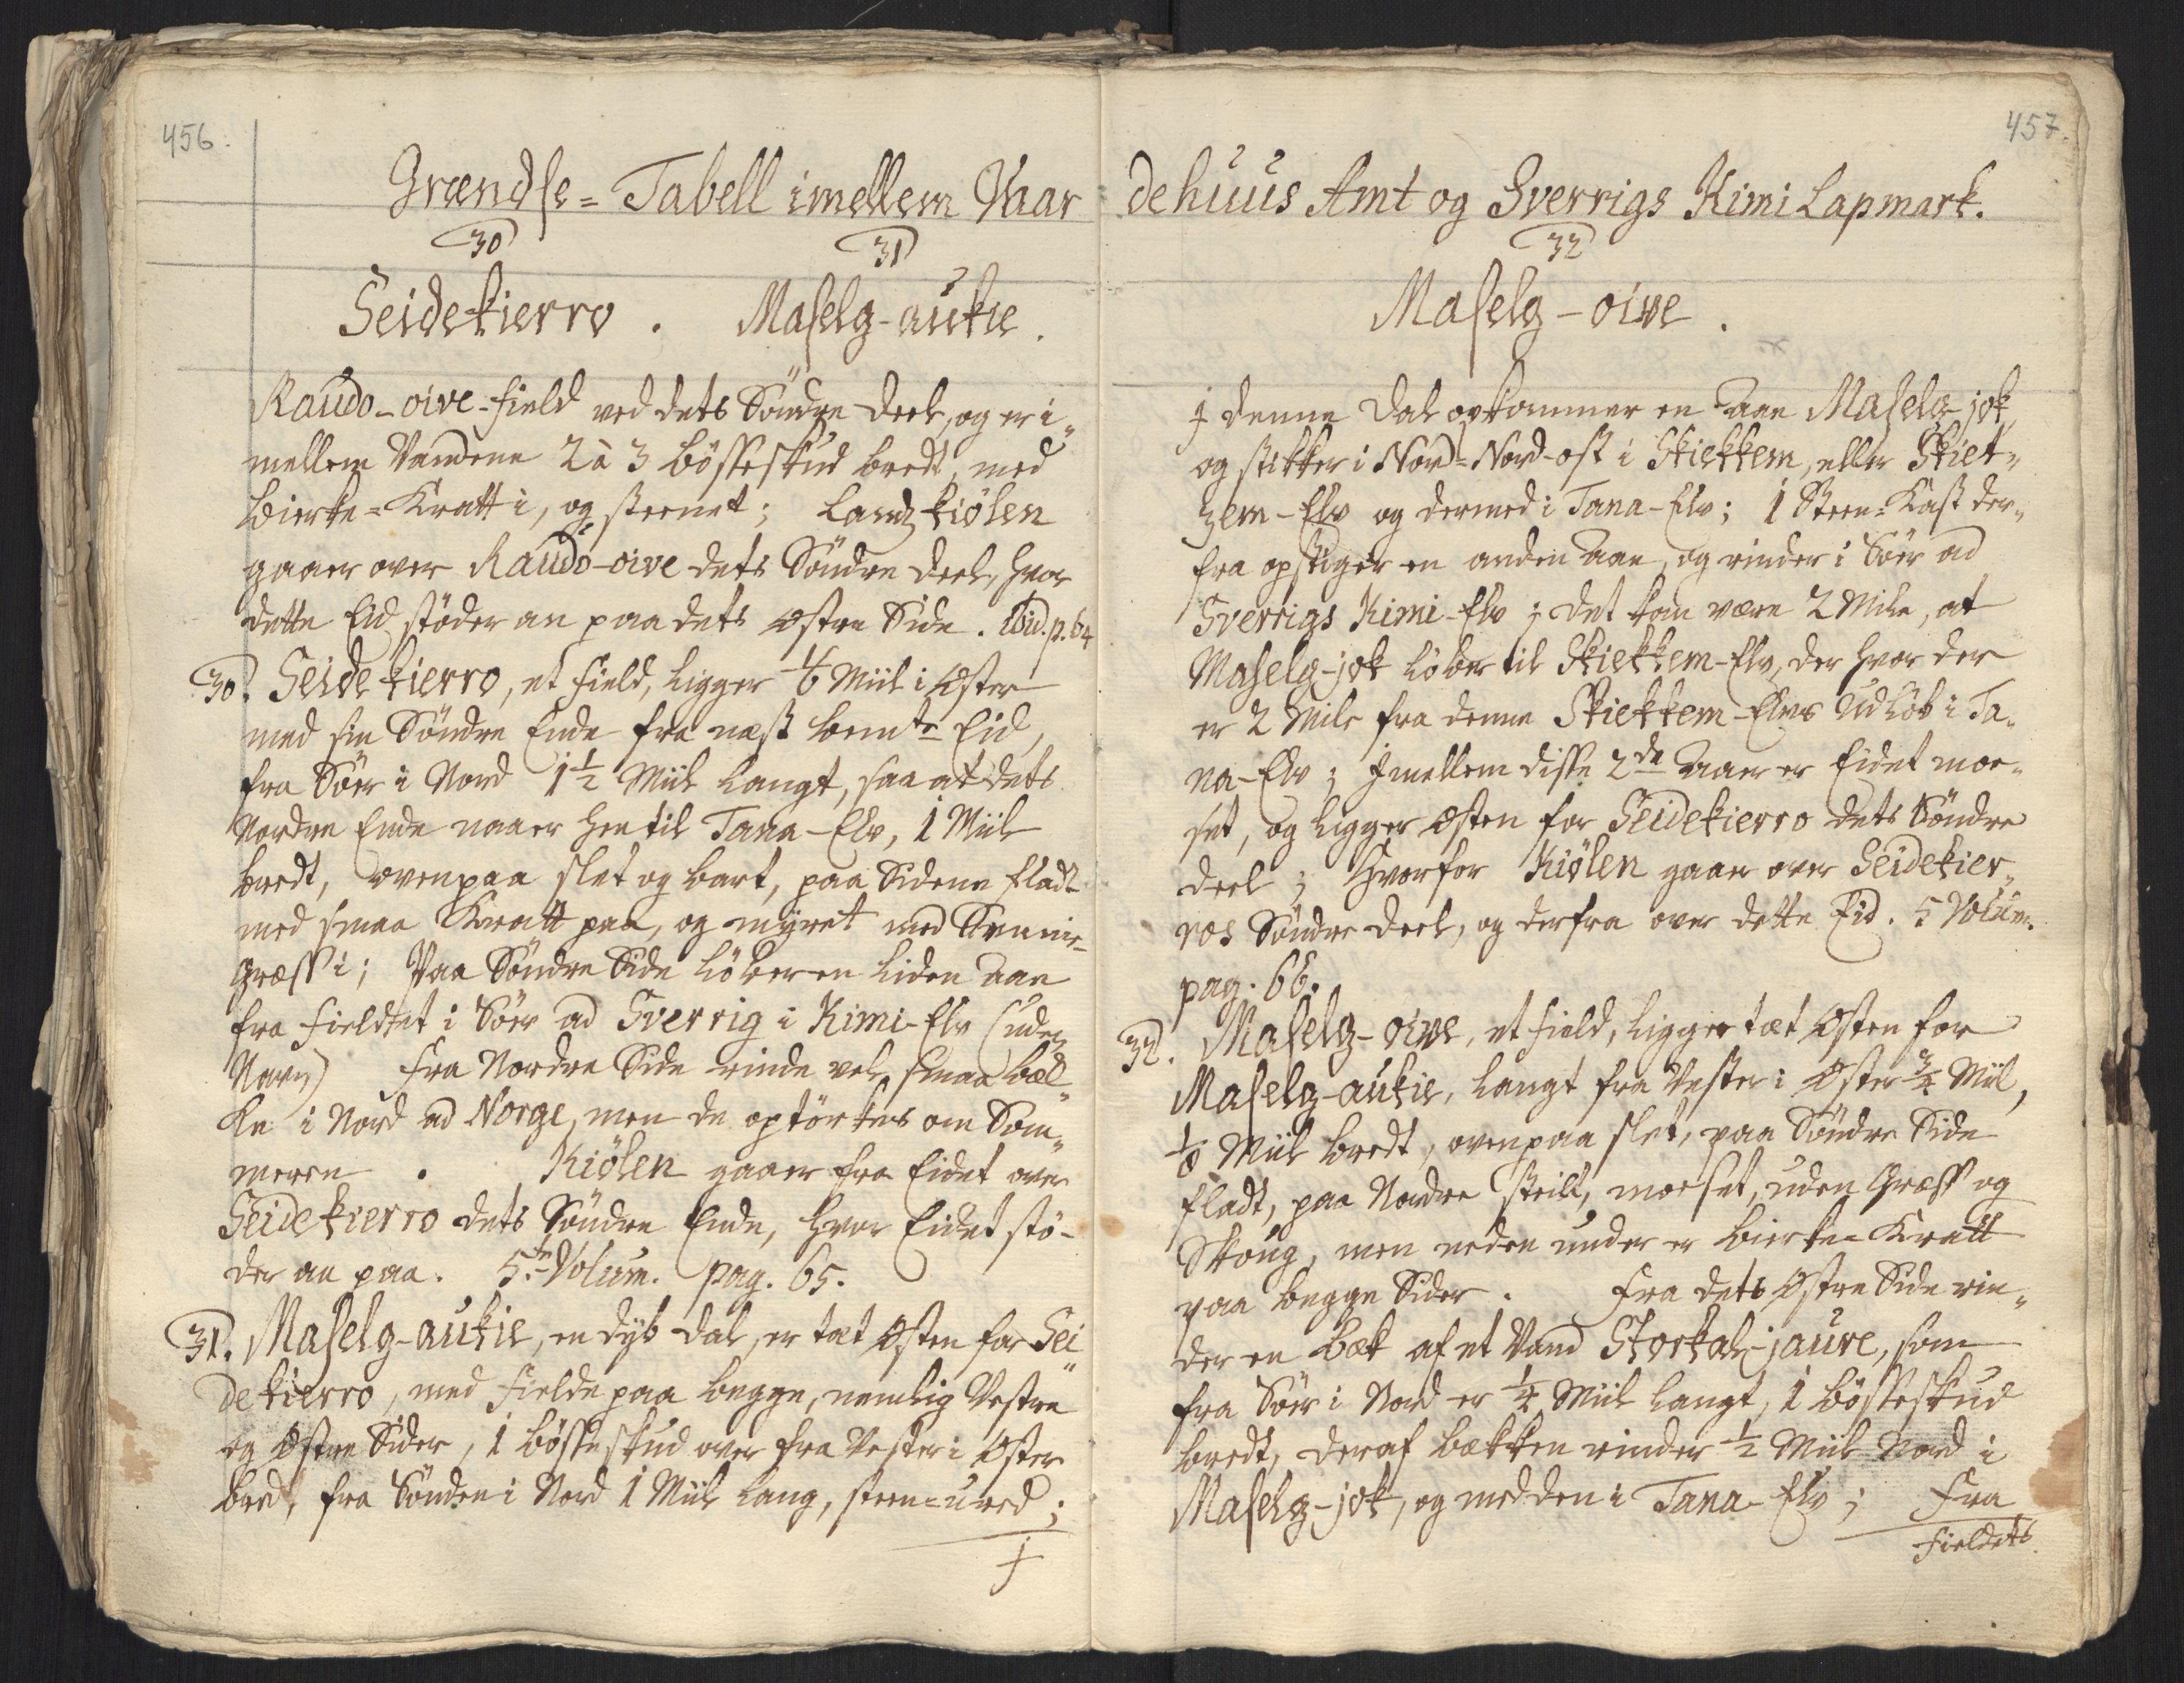 456.
Grændse=Tabell imellem Vaar
30 31
Seidekierro. Maselg-aukie.
Raudo-oive-field ved dets Söndre Deel, og er i„
mellem Vandene 2 à 3 bösseskud bredt, med
bierke=Kratt i, og steenet; Landzkiölen
gaaer over Raudo-oive dets Söndre Deel, hvor
dette Eid stöder an paa dets Östre Side. Ibid. p. 64
30. Seidekierro, et field, ligger 1/6 Miil i Öster
med sin Söndre Ende fra næst bemte Eid,
fra Söer i Nord 1 1/2 Miil langt, saa at dets
Nordre Ende naaer hen til Tana-Elv, 1 Miil
bredt, ovenpaa slet og bart, paa Siderne fladt
med smaa Kratt paa, og myret med
Græss i; Paa Söndre Side löber en liden Aae
fra Fieldet i Söer ad Sverrig i Kimi-Elv (uden
Navn) Fra Nordre Side rinde vel smaa bæk„
ke i Nord ad Norge, men de optörkes om Som„
meren. Kiölen gaaer fra Eidet over
Seidekierro dets Söndre Ende, hvor Eidet stö-
der an paa. 5te Volum. pag. 65.
31. Maselg-aukie, en dyb Dal, er tæt Östen for Sei„
dekierro, med Fielde paa begge, nemlig Vestre
og Östre Sider, 1 bösseskud over fra Vester i Öster
bred, fra Sönden i Nord 1 Miil lang, steen=ured;
J
457.
dehuus Amt og Sverrigs Kimi Lapmark.
32
Maselg-oive.
J denne Dal opkommer en Aae Maselg-jok,
og stikker i Nord=Nord-ost i Skiekkem, eller Skiet„
zem-Elv og dermed i Tana-Elv; 1 Steen=Kast der„
fra opstiger en anden Aae, og rinder i Söer ad
Sverrigs Kimi-Elv; det kan være 2 Mile, at
Maselg-jok löber til Skiekkem-Elv, der hvor der
er 2 Mile fra denne Skiekkem-Elvs Udlöb i Ta„
na-Elv; Jmellem disse 2de Aaer er Eidet moe„
set, og ligger Östen for Seidekierro dets Söndre
Deel; Hvorfor Kiölen gaaer over Seidekier„
ros Söndre Deel, og derfra over dette Eid. 5 Volum.
pag. 66.
32. Maselg-oive, et field, ligger tæt Östen for
Maselg-aukie, langt fra Vester i Öster 3/4 Miil,
1/8 Miil bredt, ovenpaa slet, paa Söndre Side
fladt, paa Nordre steilt, moeset, uden Græss og
Skoug, men neden under er bierke=Kratt
paa begge Sider. Fra dets Östre Side rin„
der en bæk af et Vand Storkak-jaure, som
fra Söer i Nord er 1/4 Miil langt, 1 bösseskud
bredt, deraf bækken rinder 1/2 Miil Nord i
Maselg-jok, og med den i Tana-Elv; Fra
Fieldets